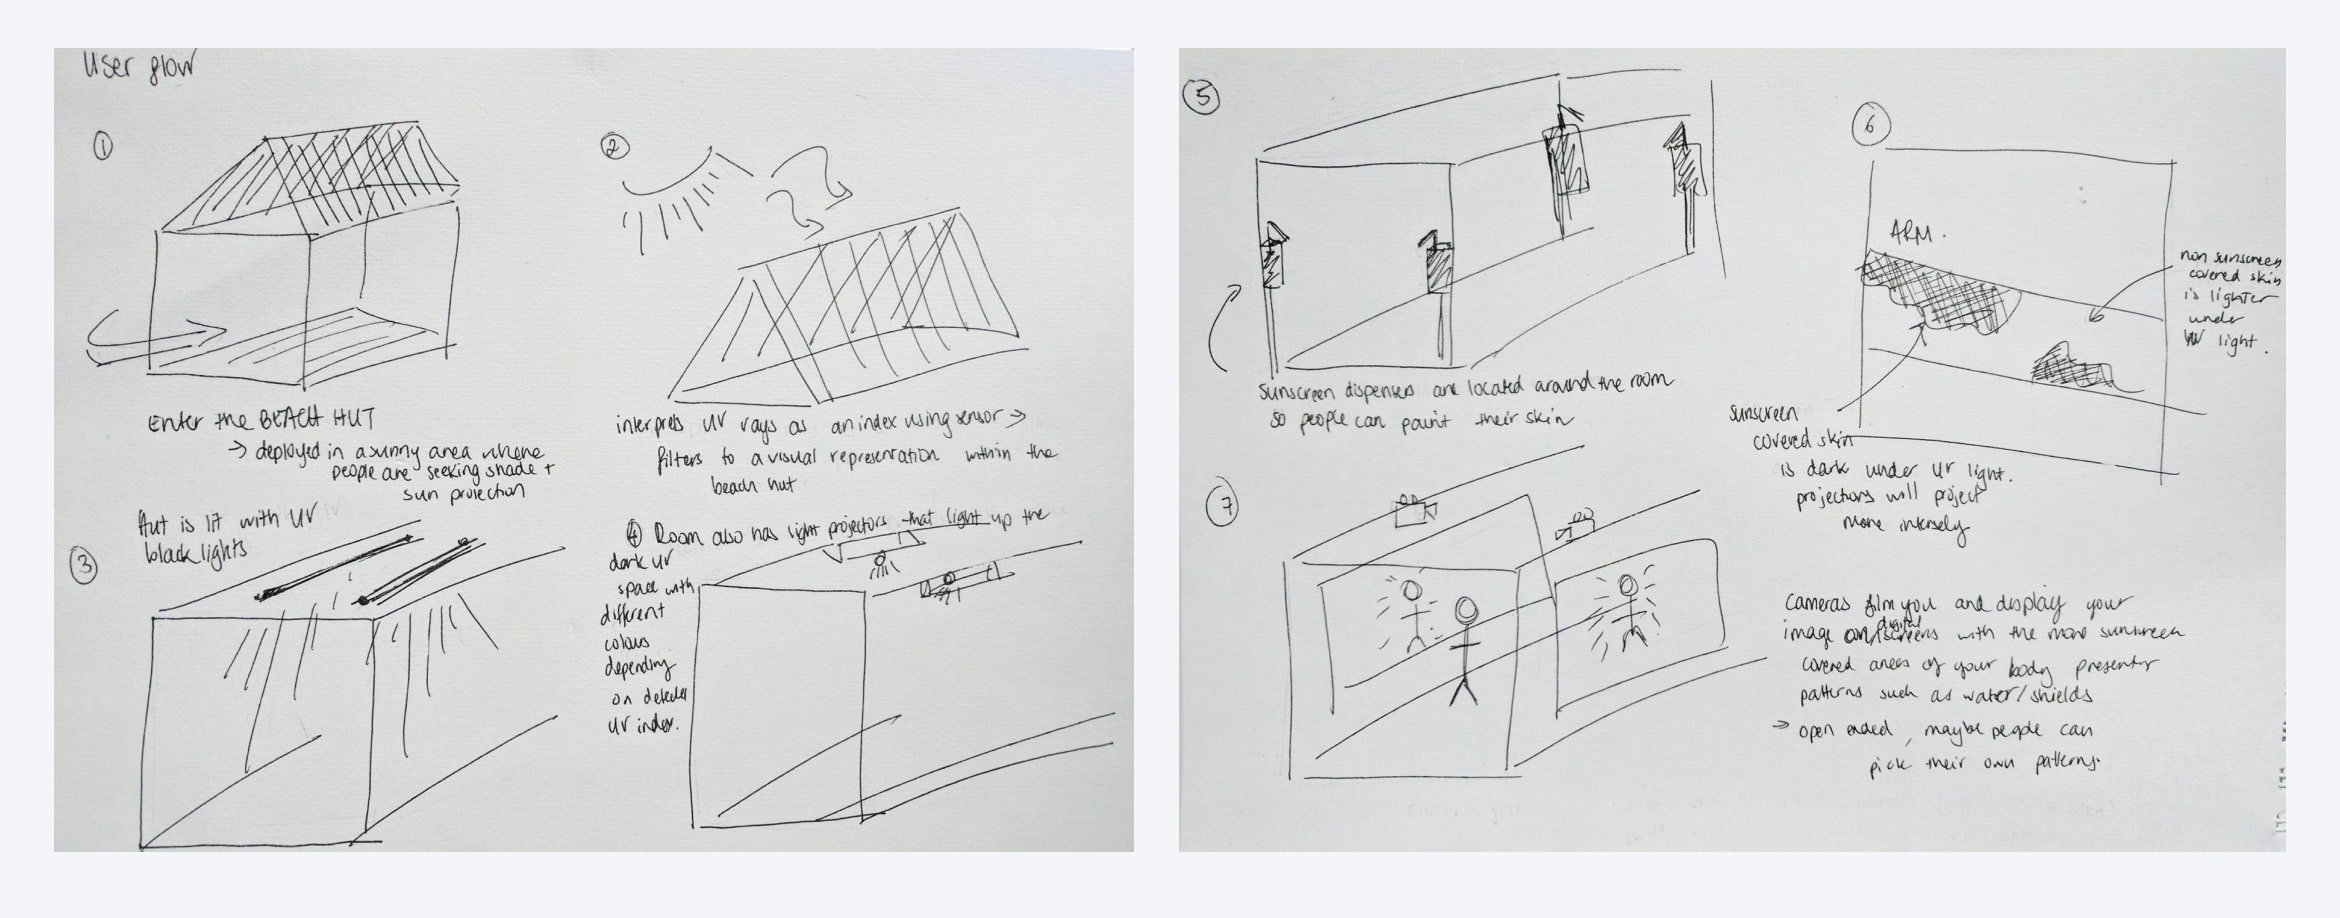 User flow
1
Enter the BEACH HUT
→ deployed in a sunny area where
people are seeking shade +
sun protection
2
interprets UV rays as an index using sensor →
filters to a visual representation within the
beach hut
Hut is lit with UV
black lights
3
4 Room also has light projectors that light up the
dark UV
space with
different
colours
depending
on detected
UV index.
5
Sunscreen dispensers are located around the room
so people can paint their skin
6
ARM.
non sunscreen
covered skin
is lighter
under
UV light.
sunscreen
covered skin
is dark under UV light.
projections will project
more intensely
7
Cameras film you and display your
image on digital screens with the more sunscreen
covered areas of your body presenting
patterns such as water/shields
→ open ended, maybe people can
pick their own patterns.